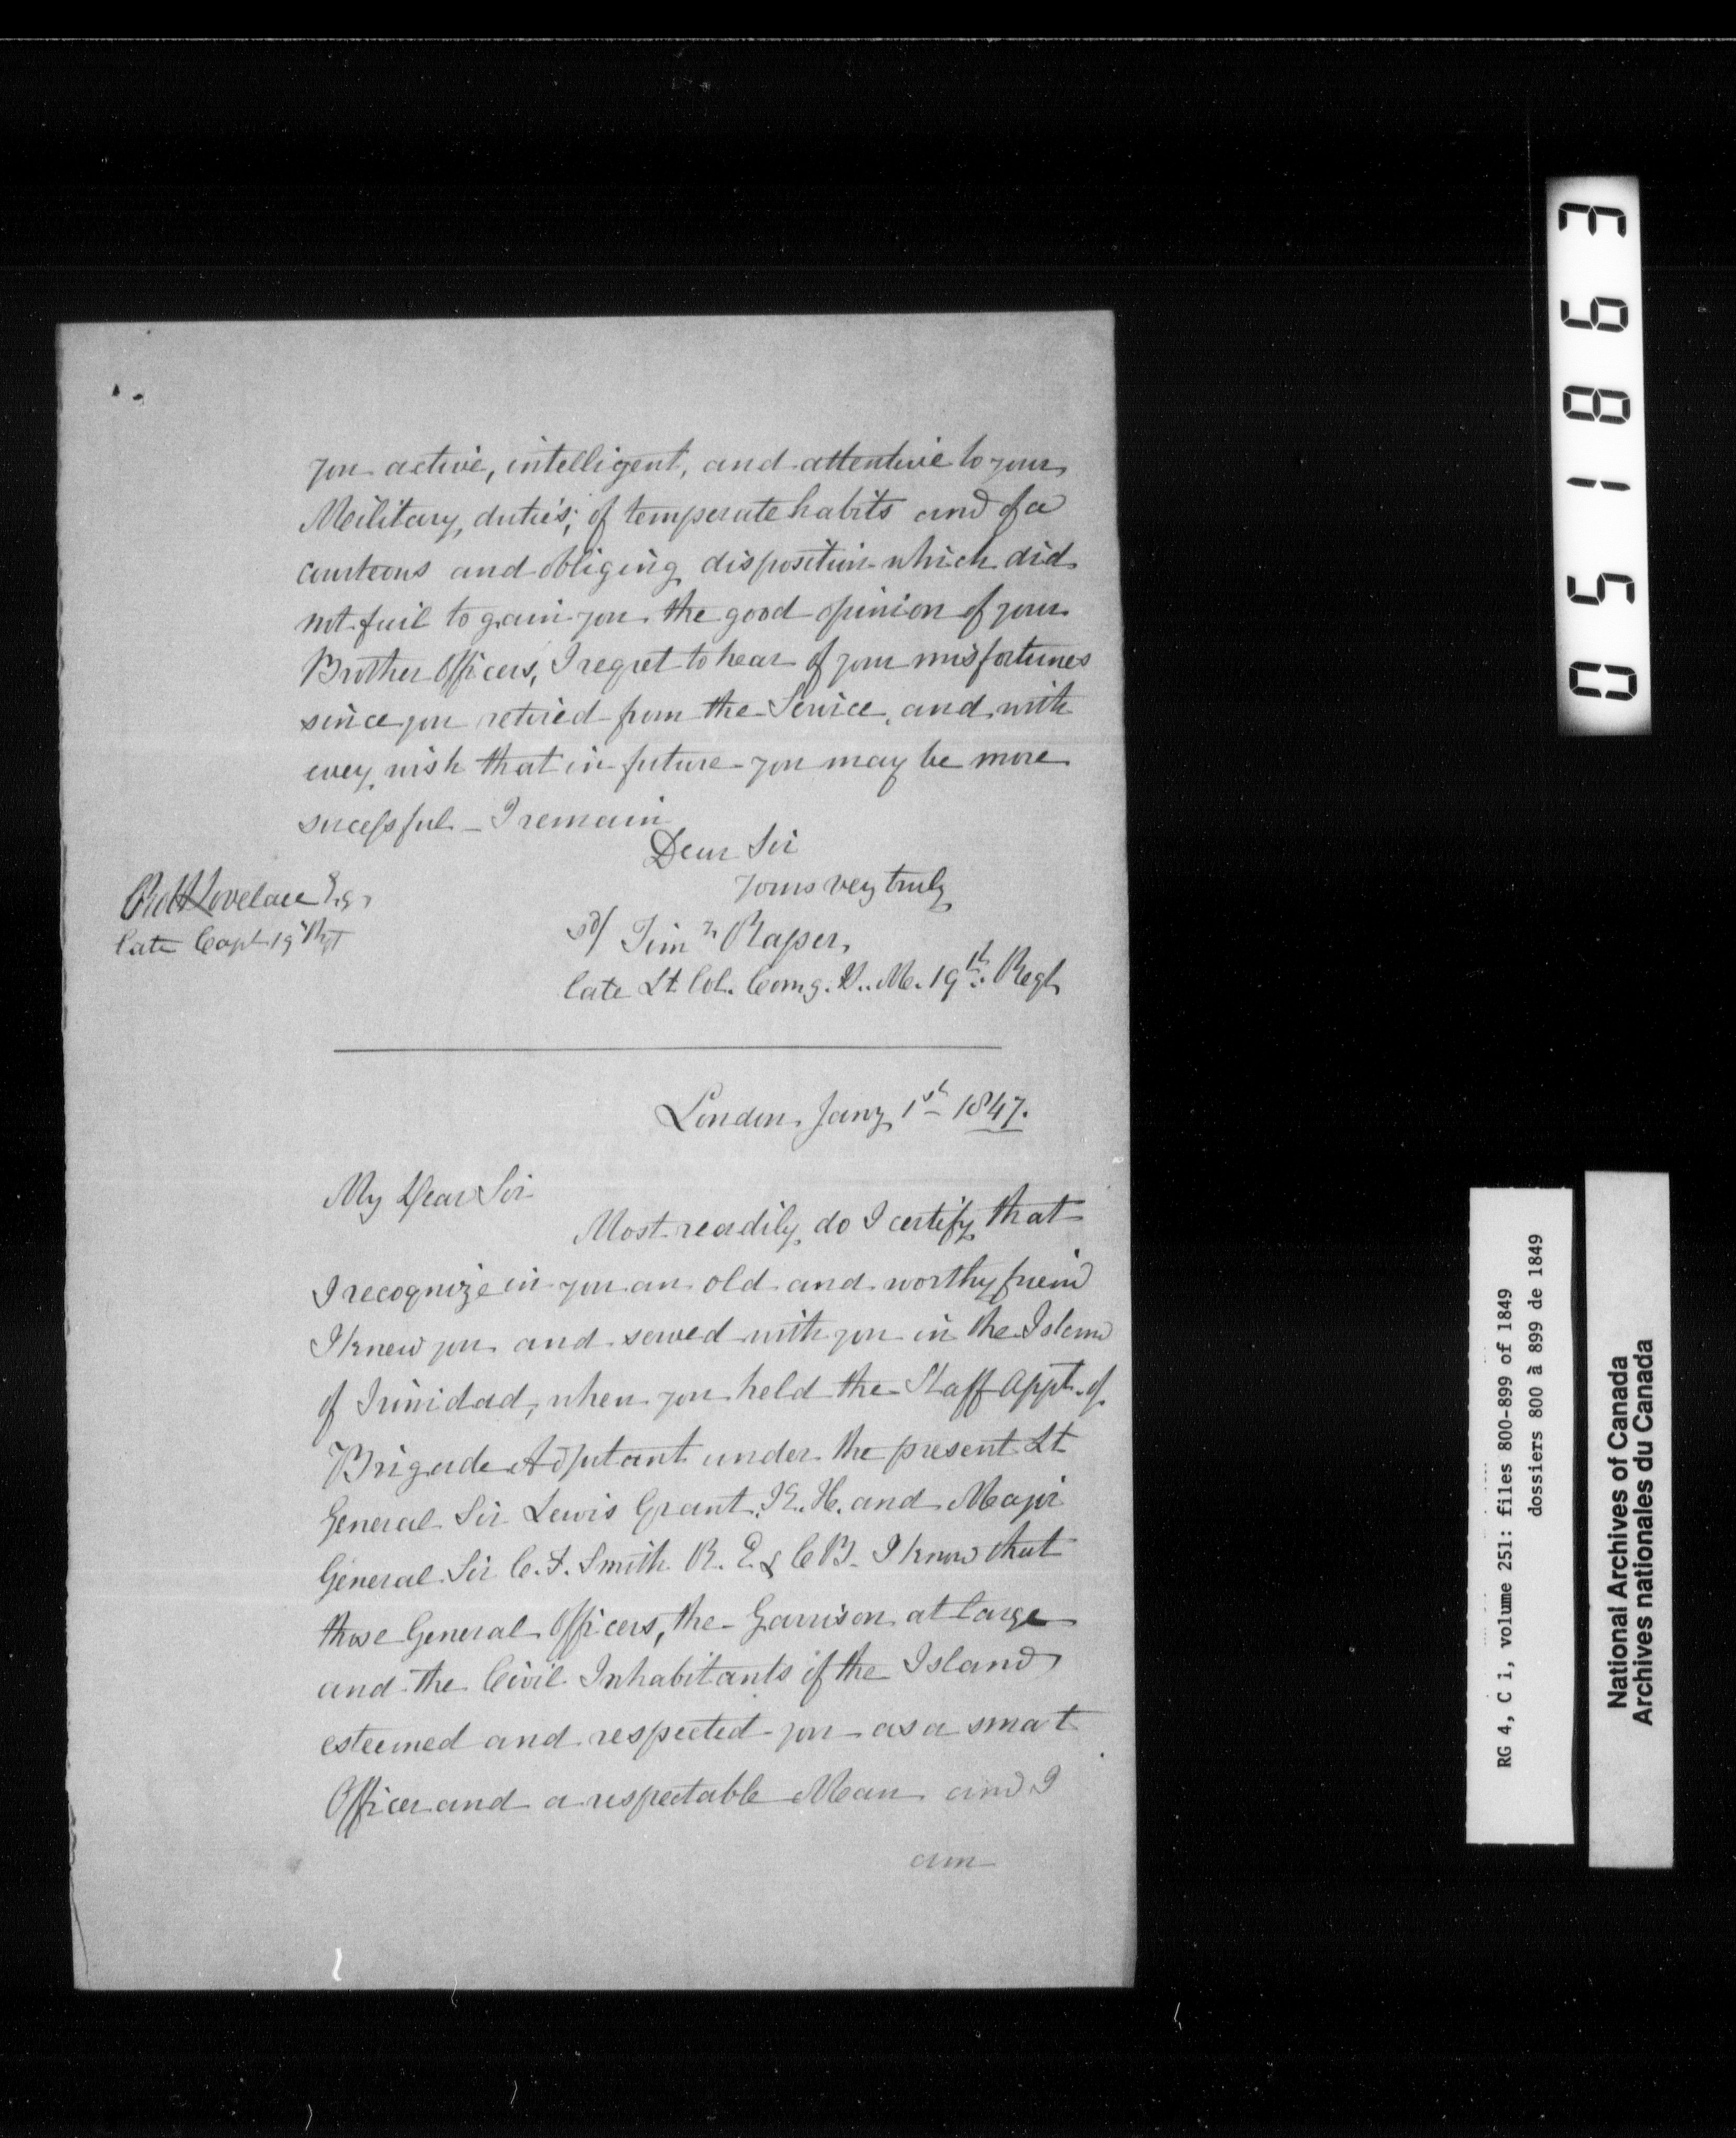 you active, intelligent, and attentive to your
Military, duties; of temperate habits and of a
courteous and obliging disposition which did
not fail to gain you the good opinion of your
Brother Officers, I regret to hear of your misfortunes
since you retired from the Service, and with
every wish that in future you may be more
sucessful - I remain
Dear Sir
yours very truly
Lovelace Esq,
late Capt 19th Regt
sd/ Tim Raper,
late Lt Col. Comg. 19th Regt
London, Jany 1st 1847.
My Dear Sir
Most readily do I certify that
I recognize in you an old and worthy friend
I knew you and served with you in the Island
of Trinidad, when you held the Staff Appt. of
Brigade Adjutant under the present Lt
General Sir Lewis Grant. K. H. and Major
General Sir C. F. Smith R. E & CB. I know that
those General Officers, the Garrison at large
and the Civil Inhabitants of the Island
esteemed and respected you as a smart
Officer and a respectable Man and I
am
051863
RG 4, C 1, volume 251: files 800-899 of 1849
dossiers 800 à 899 de 1849
National Archives of Canada
Archives nationales du Canada